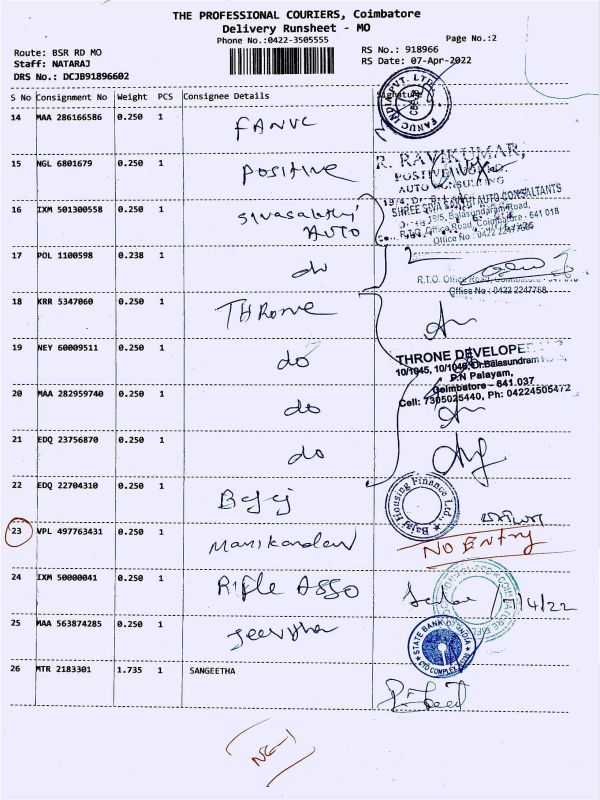 THE PROFESSIONAL COURIERS, Coimbatore
Delivery Runsheet - MO
Phone No.:0422-3505555
Page No.:2
Route: BSR RD MO
RS No.: 918966
Staff: NATARAJ
RS Date: 07-Apr-2022
DRS No.: DCJB91896602
S No Consignment No Weight PCS Consignee Details Signature
14 MAA 286166586 0.250 1 FANUC
FANUC INDIA PVT. LTD.
15 NGL 6801679 0.250 1 POSITIVE
R. RAVIKUMAR,
AUTO CONSULTING
16 IXM 501300558 0.250 1 Sivasakthi AUTO
SHREE SIVA SAKTHI AUTO CONSULTANTS
Balasundaram Road,
R.T.O. Office Road, Coimbatore - 641 018
Office No : 0422 2247768
17 POL 1100598 0.238 1 do
R.T.O. Office Road, Coimbatore - 641 018
Office No : 0422 2247768
18 KRR 5347060 0.250 1 THRone
19 NEY 60009511 0.250 1 do
THRONE DEVELOPERS
10/1045, 10/1046, Dr.Balasundram
P.N Palayam,
Coimbatore - 641.037
Cell: 7305025440, Ph: 04224505472
20 MAA 282959740 0.250 1 do
21 EDQ 23756870 0.250 1 do
22 EDQ 22704310 0.250 1 Bajaj
Bajaj Housing Finance Ltd.
23 VPL 497763431 0.250 1 Manikandan
NO Entry
24 IXM 50000041 0.250 1 Rifle Asso
7/4/22
25 MAA 563874285 0.250 1 Jeevitha
STATE BANK OF INDIA
26 MTR 2183301 1.735 1 SANGEETHA
NE-1